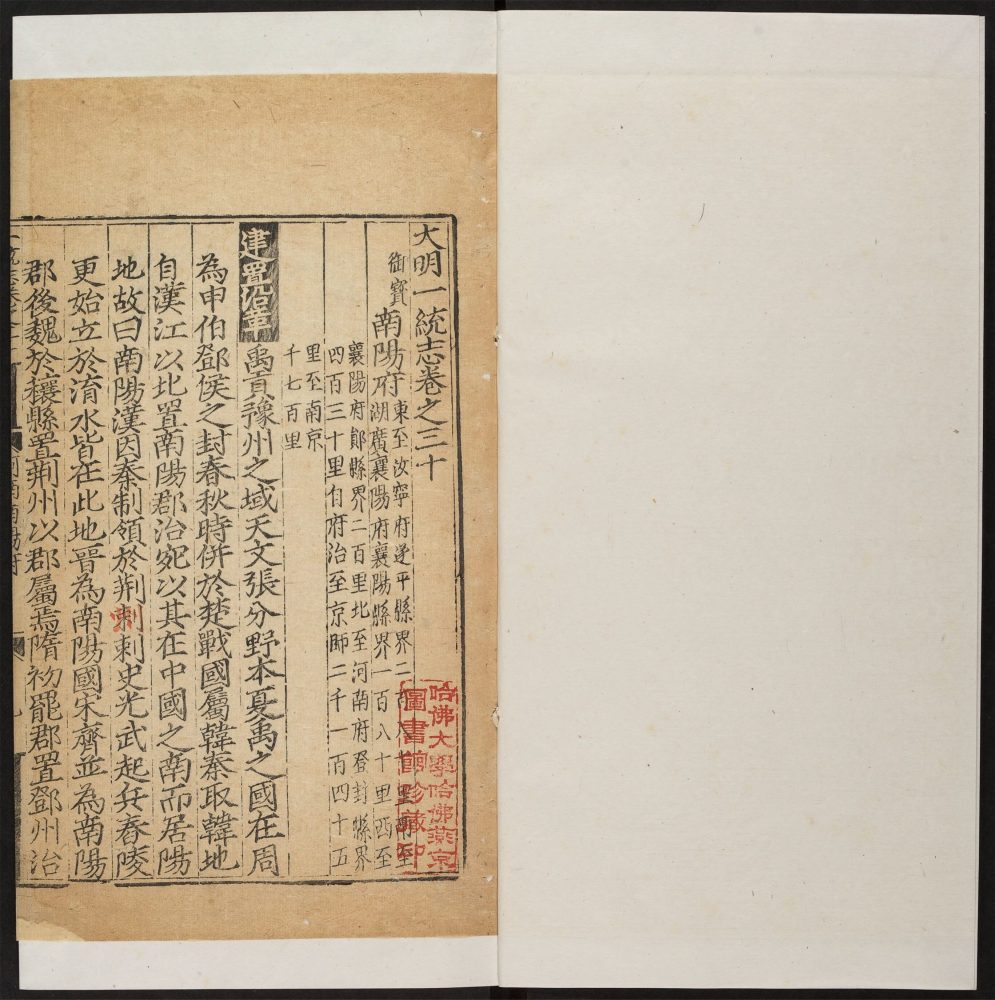 大明一統志卷之三十
御寶
南陽府
東至汝寧府遂平縣界二百八十里南至
湖廣襄陽府襄陽縣界一百八十里西至
襄陽府鄖縣界二百里北至河南府登封縣界
四百三十里自府治至京師二千一百四十五
里至南京
千七百里
建置沿革
禹貢豫州之域天文張分野本夏禹之國在周
為申伯鄧侯之封春秋時併於楚戰國屬韓秦取韓地
自漢江以北置南陽郡治宛以其在中國之南而居陽
地故曰南陽漢因秦制領於荆州刺史光武起兵舂陵
更始立於淯水皆在此地晉為南陽國宋齊並為南陽
郡後魏於穰縣置荆州以郡屬焉隋初罷郡置鄧州治
哈佛大學哈佛燕京
圖書館珍藏印